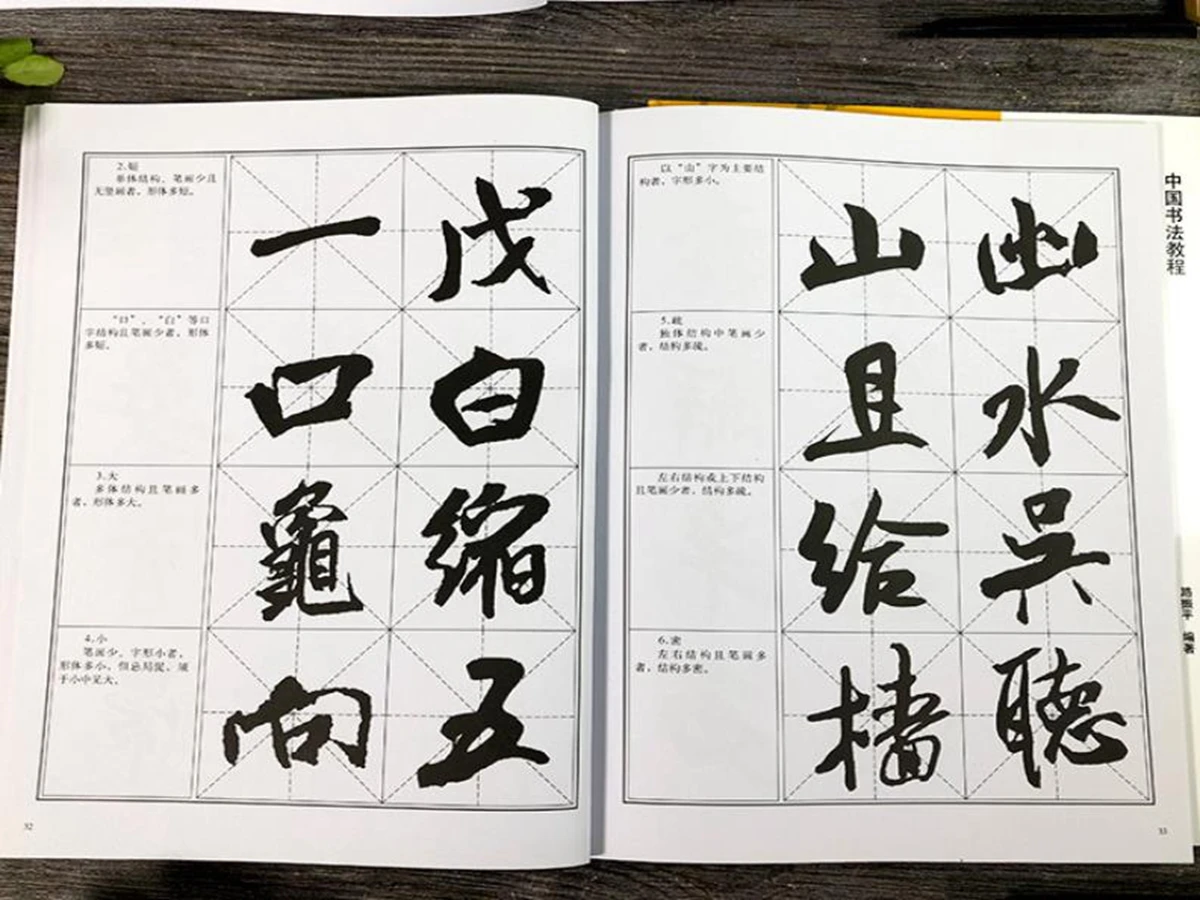 2.短
单体结构、笔画少且
无竖画者,形体多短。
一 戊
“口”、“白”等口
字结构且笔画少者,形体
多短。
口 白
3.大
多体结构且笔画多
者,形体多大。
龜 缩
4.小
笔画少、字形小者,
形体多小,但忌局促,须
于小中见大。
向 五
32
以“山”字为主要结
构者,字形多小。
山 幽
5.疏
独体结构中笔画少
者,结构多疏。
且 水
左右结构或上下结构
且笔画少者,结构多疏。
给 吴
6.密
左右结构且笔画多
者,结构多密。
墙 聽
33
中国书法教程
路振平 编著